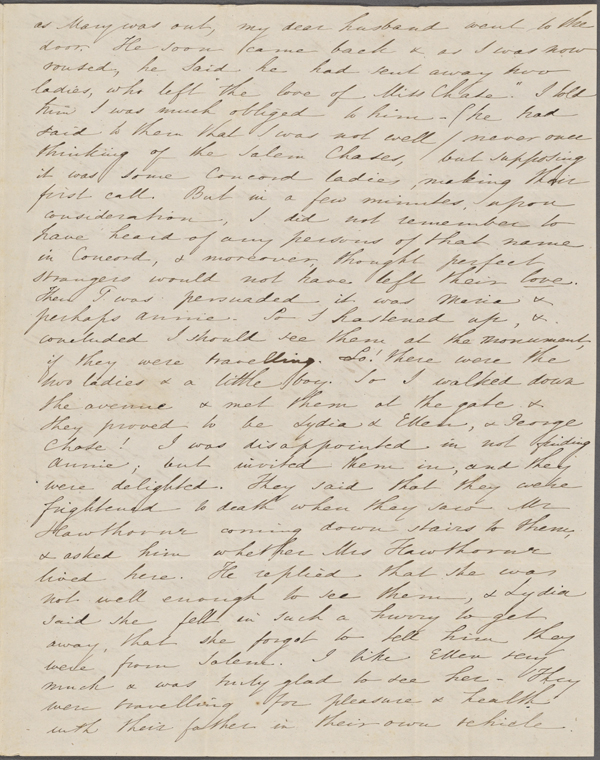 as Mary was out, my dear husband went to the
door. He soon came back & as I was now
roused, he said he had sent away two
ladies, who left "the love of Miss Chase." I told
him I was much obliged to him - (he had
said to them that I was not well) never once
thinking of the Salem Chases, but supposing
it was some Concord ladies, making their
first call. But in a few minutes, upon
consideration, I did not remember to
have heard of any persons of that name
in Concord, & moreover, thought perfect
strangers would not have left their love.
Then I was persuaded it was Maria &
perhaps Annie. So I hastened up, &
concluded I should see them at the monument,
if they were travelling. Lo! there were the
two ladies & a little boy. So I walked down
the avenue & met them at the gate &
they proved to be Lydia & Ellen, & George
Chase! I was disappointed in not finding
Annie, but invited them in, and they
were delighted. They said that they were
frightened to death when they saw Mr
Hawthorne coming down stairs to them,
& asked him whether Mrs Hawthorne
lived here. He replied that she was
not well enough to see them, & Lydia
said she felt in such a hurry to get
away, that she forgot to tell him they
were from Salem. I like Ellen very
much & was truly glad to see her - They
were travelling for pleasure & health
with their father in their own vehicle.